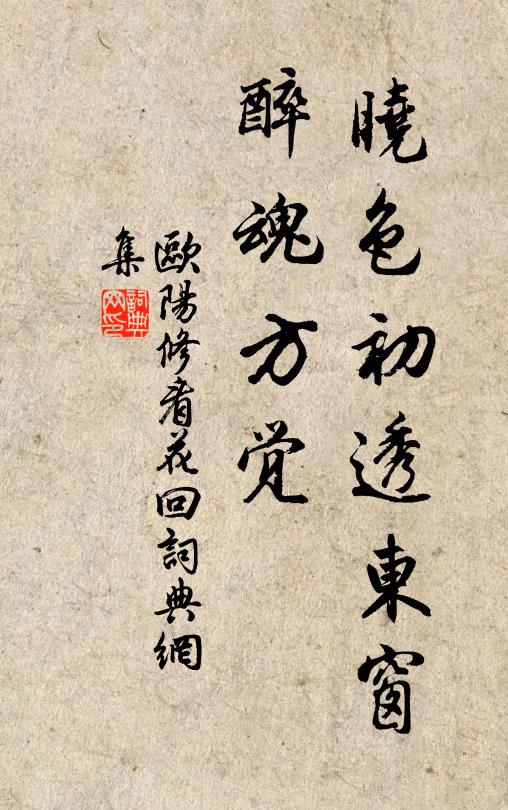 曉色初透東窗
醉魂方覺
歐陽修看花回詞典網
集
詞典网印